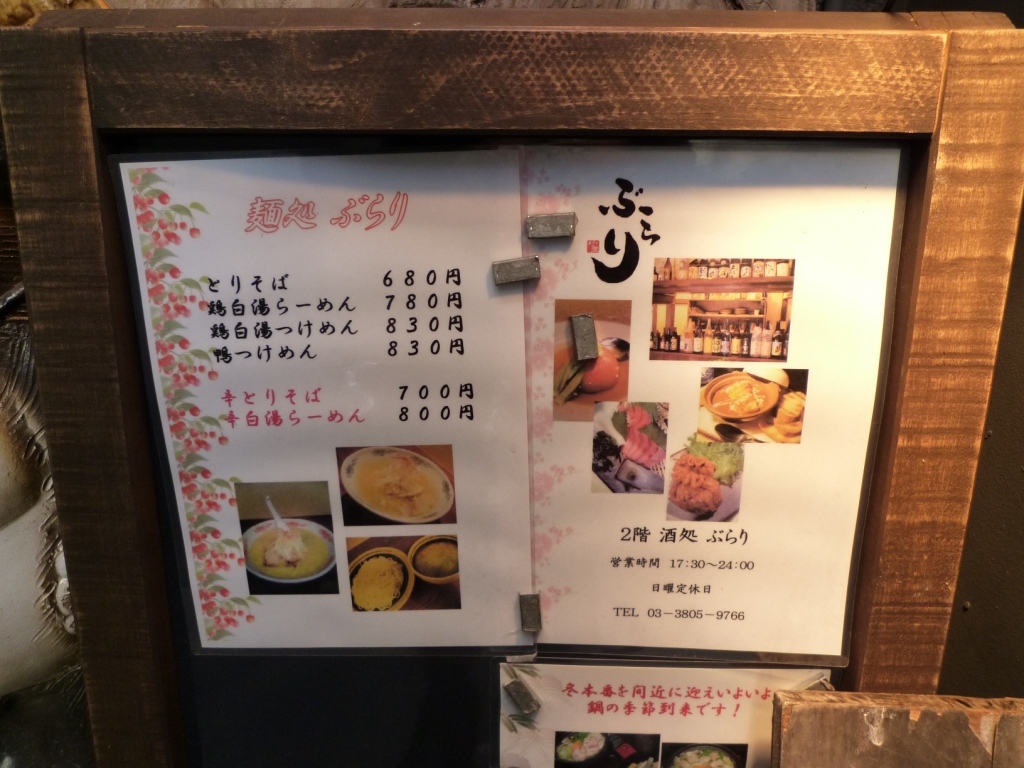 麺処 ぶらり
とりそば 680円
鶏白湯らーめん 780円
鶏白湯つけめん 830円
鴨つけめん 830円
辛とりそば 700円
辛白湯らーめん 800円
ぶらり
2階 酒処 ぶらり
営業時間 17:30～24:00
日曜定休日
TEL 03－3805－9766
冬本番を間近に迎えいよいよ
鍋の季節到来です！